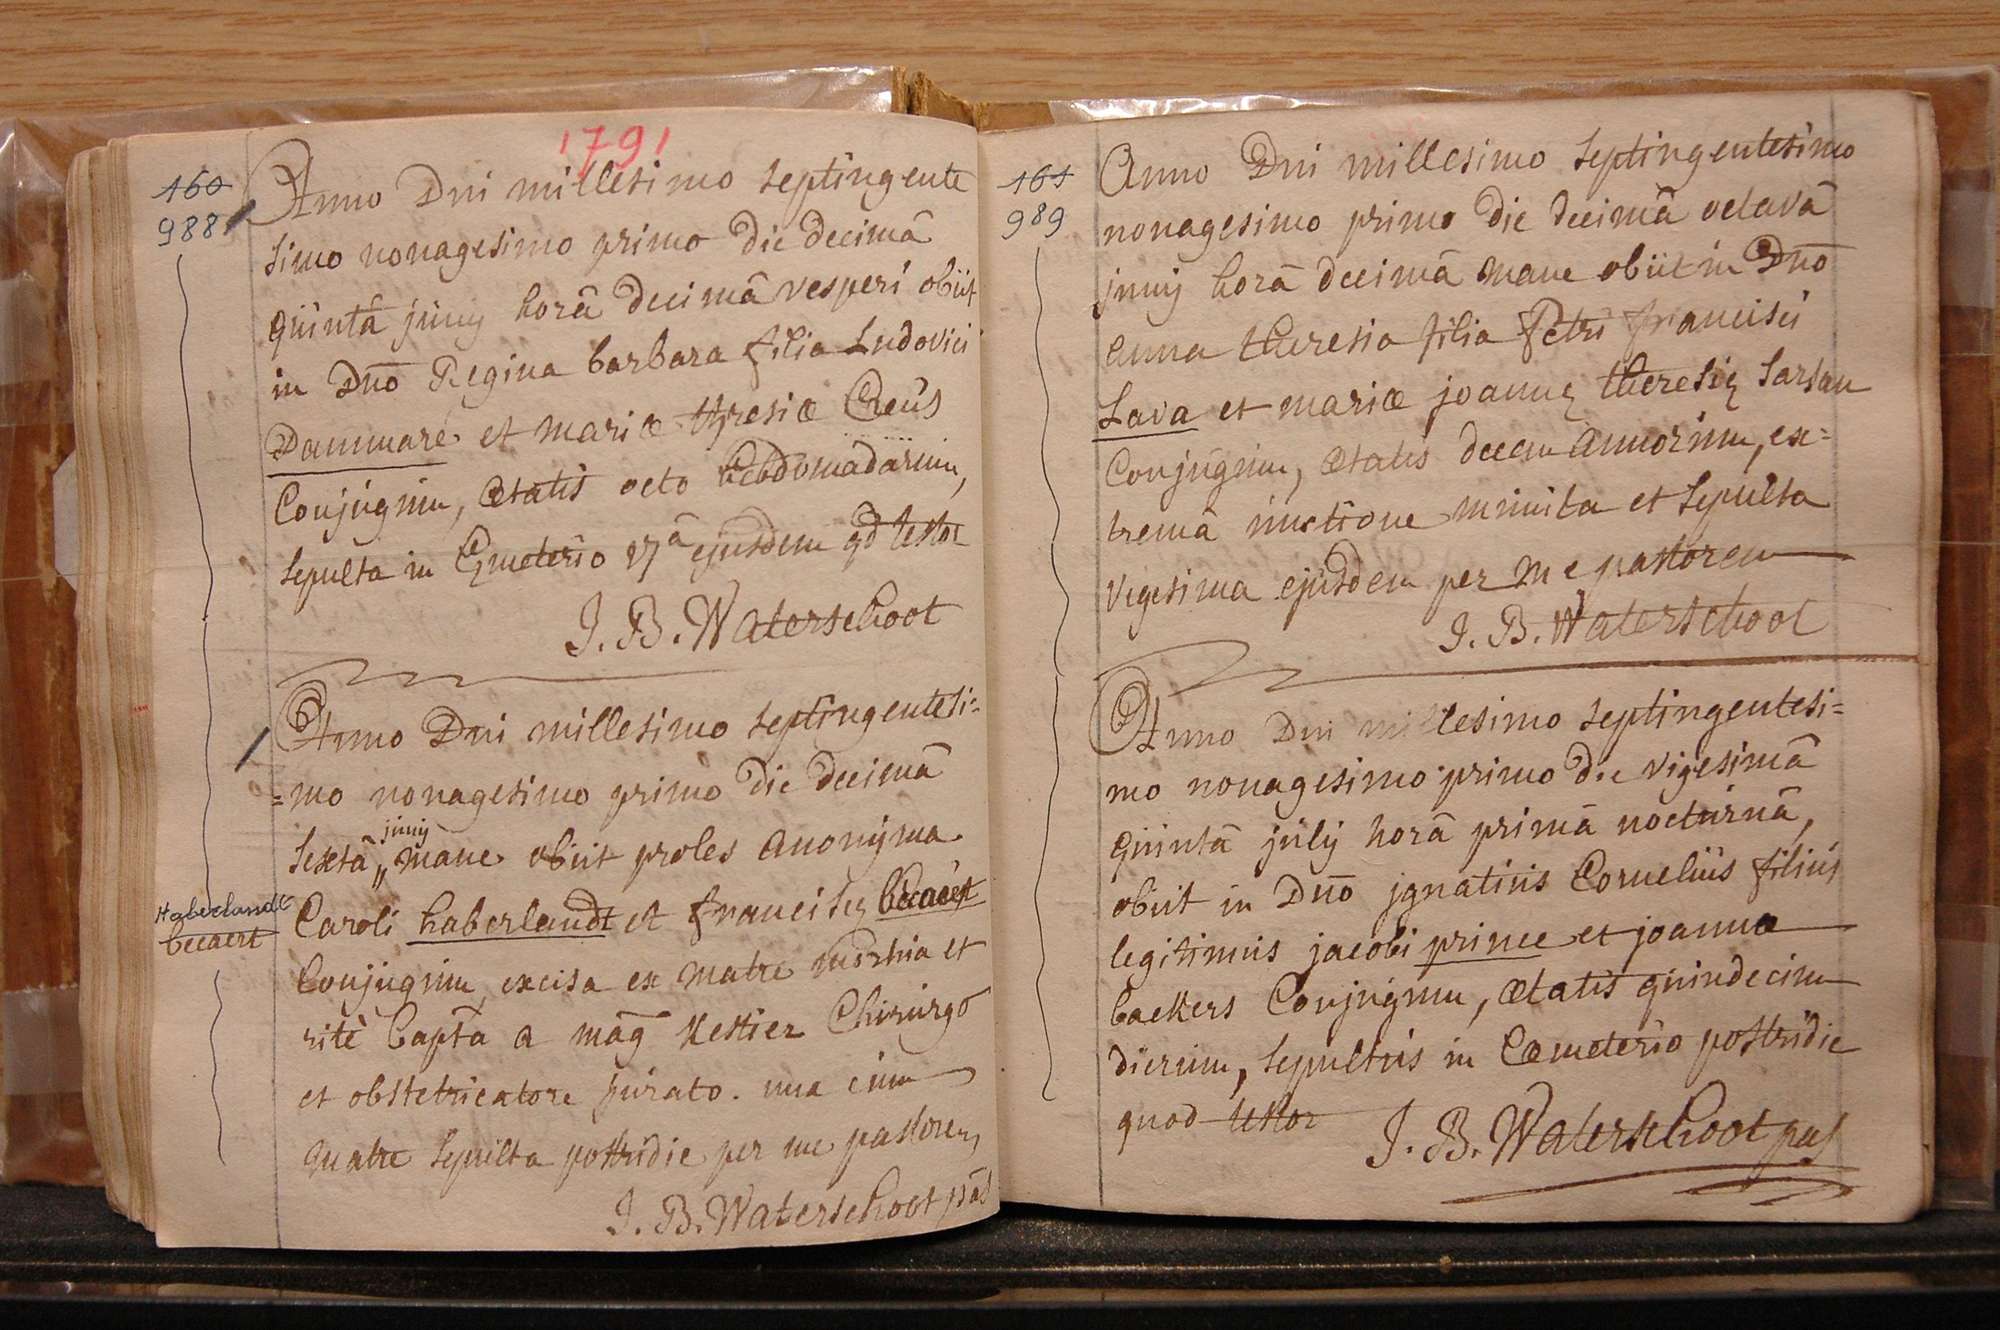 1791
160
988
Anno Dni millesimo septingente
simo nonagesimo primo die decimâ
quintâ junij horâ decimâ vesperi obiit
in Dno Regina barbara filia Ludovici
Dammare et mariæ thresiæ Creüs
Conjugum, ætatis octo hebdomadarum,
sepulta in Cœmeterio 17â ejusdem qd testor
J. B. Waterschoot
Anno Dni millesimo septingentesi=
=mo nonagesimo primo die decimâ
junij
sextâ „ mane obiit proles anonÿma
Haberlandt
becaert
Caroli haberlandt et franciscę becaert
Conjugum, excisa ex matre mortua et
ritè bapta a mag Kestier Chirurgo
et obstetricatore jurato. una cum
matre sepulta postridie per me pastorem
J. B. Waterschoot pās
161
989
Anno Dni millesimo septingentesimo
nonagesimo primo die decimâ octavâ
junij horâ decimâ mane obiit in Dno
anna theresia filia Petri francisci
Lava et mariæ joannę theresię sarsan
Conjugum, ætatis decem annorum, ex=
tremâ unctione munita et sepulta
vigesima ejusdem per me pastorem
J. B. Waterschoot
Anno Dni millesimo septingentesi=
mo nonagesimo primo die vigesimâ
quintâ julij horâ primâ nocturnâ,
obiit in Dno jgnatius Cornelius filius
legitimus jacobi prince et joanna
backers Conjugum, ætatis quindecim
dierum, sepultus in Cœmeterio postridie
quod testor
J. B. Waterschoot pas